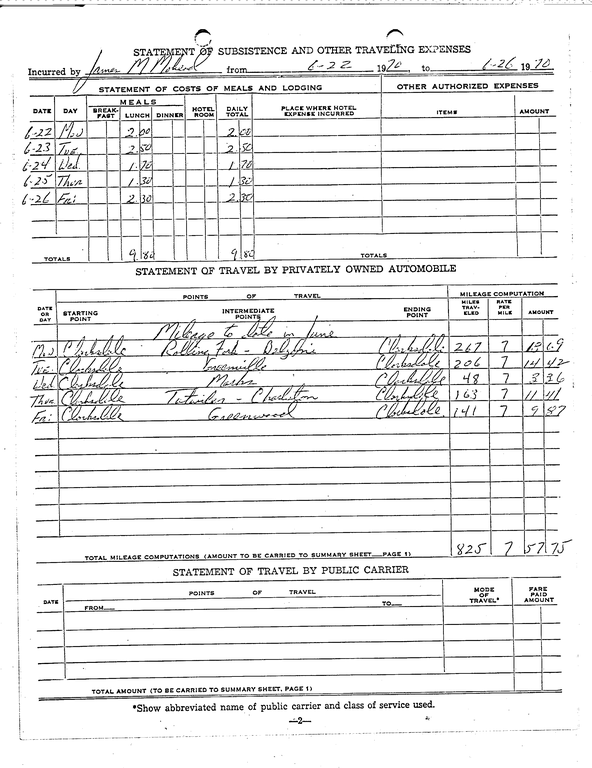 STATEMENT OF SUBSISTENCE AND OTHER TRAVELING EXPENSES
Incurred by James M from 6-22 1970 to 6-26 1970
STATEMENT OF COSTS OF MEALS AND LODGING OTHER AUTHORIZED EXPENSES
DATE DAY MEALS BREAK-FAST LUNCH DINNER HOTEL ROOM DAILY TOTAL PLACE WHERE HOTEL EXPENSE INCURRED ITEMS AMOUNT
6-22 Mon 2.00 2.00
6-23 Tue 2.50 2.50
6-24 Wed. 1.70 1.70
6-25 Thur 1.30 1.30
6-26 Fri 2.30 2.30
TOTALS 9.80 9.80 TOTALS
STATEMENT OF TRAVEL BY PRIVATELY OWNED AUTOMOBILE
POINTS OF TRAVEL MILEAGE COMPUTATION
DATE OR DAY STARTING POINT INTERMEDIATE POINTS ENDING POINT MILES TRAV-ELED RATE PER MILE AMOUNT
Mileage to date in June
Mon Clarksdale Rolling Fork - Belzoni Clarksdale 267 7 18 69
Tue: Clarksdale Greenville Clarksdale 206 7 14 42
Wed Clarksdale Marks Clarksdale 48 7 3 36
Thur Clarksdale Tutwiler - Charleston Clarksdale 163 7 11 41
Fri: Clarksdale Greenwood Clarksdale 141 7 9 87
TOTAL MILEAGE COMPUTATIONS (AMOUNT TO BE CARRIED TO SUMMARY SHEET PAGE 1) 825 7 57 75
STATEMENT OF TRAVEL BY PUBLIC CARRIER
DATE POINTS OF TRAVEL MODE OF TRAVEL* FARE PAID AMOUNT
FROM TO
TOTAL AMOUNT (TO BE CARRIED TO SUMMARY SHEET, PAGE 1)
*Show abbreviated name of public carrier and class of service used.
—2—